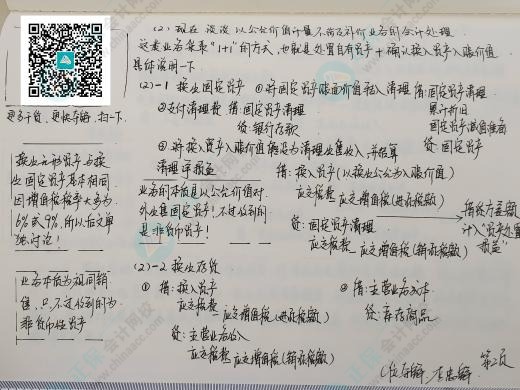 (2) 现在谈谈以公允价值计量不涉及补价业务的会计处理
这类业务采取“1+1”的方式,也就是处置自有资产+确认换入资产入账价值
具体说明一下
(2)-1 换出固定资产 ①将固定资产账面价值转入清理 借:固定资产清理
累计折旧
固定资产减值准备
贷:固定资产
②支付清理费 借:固定资产清理
贷:银行存款
③将换入资产入账价值确认为清理出售收入,并结算
清理净损益
借:换入资产(以换出公允为入账价值)
应交税费 应交增值税(进项税额)
贷:固定资产清理
应交税费 应交增值税(销项税额)
借贷方差额
计入“资产处置
损益”
更多干货,更快存储,扫一下
换出无形资产与换
出固定资产基本相同
因增值税税率大多为
6%或9%,所以后文单
独讨论!
业务本质是以公允价值对
外出售固定资产!不过收到的
是非货币资产!
(2)-2 换出存货
① 借:换入资产
应交税费 应交增值税(进项税额)
贷:主营业务收入
应交税费 应交增值税(销项税额)
② 借:主营业务成本
贷:库存商品
业务本质为视同销
售,只不过收到的为
非货币性资产
第2页
正保会计网校
www.chinaacc.com